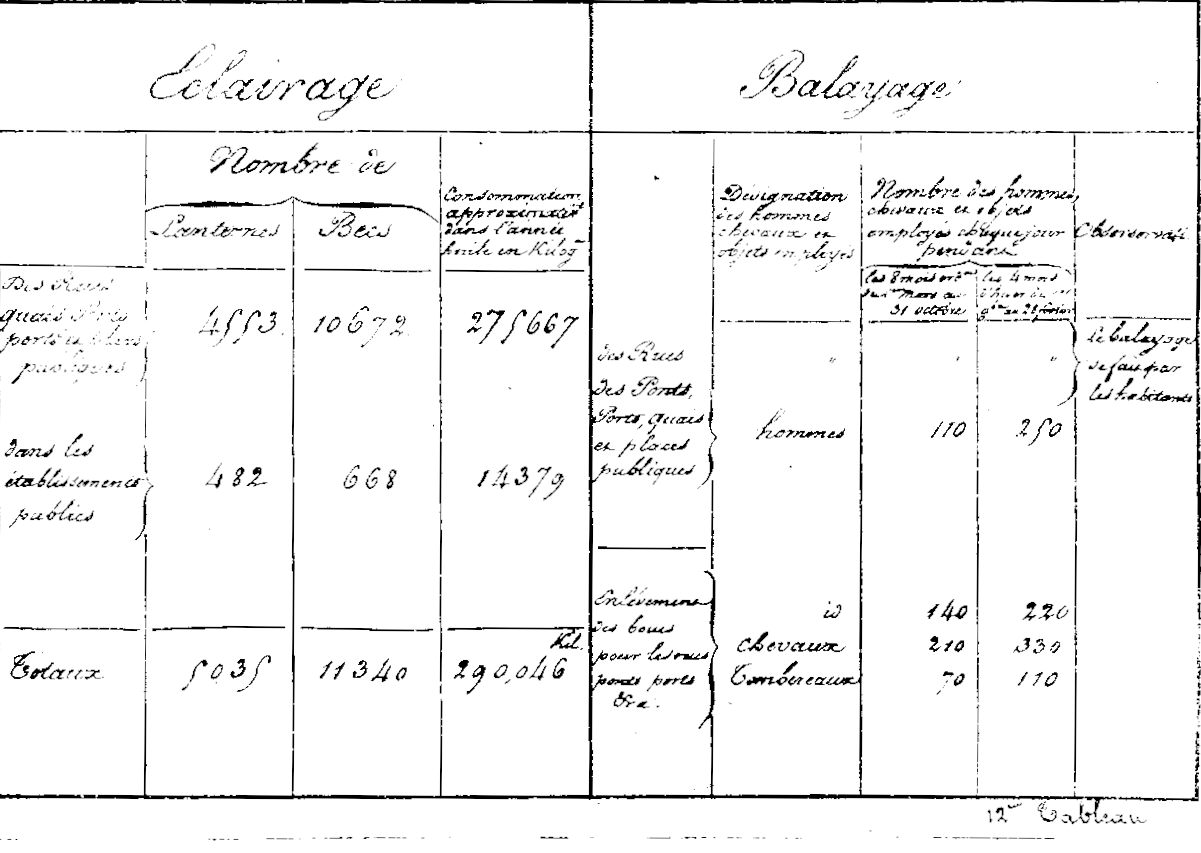 Eclairage
Nombre de
Lanternes
Becs
Consommation
approximative
dans l'année
huile en Kilog
Des Rues
quais Ponts
ports et places
publiques
4553
10672
275667
dans les
établissements
publics
482
668
14379
Totaux
5035
11340
Kil.
290,046
Balayage
Désignation
des hommes
chevaux et
objets employés
Nombre des hommes,
chevaux et objets
employés chaque jour
pendant
les 8 mois
mars au
31 octobre
les 4 mois
d'hiver
Observat
des Rues
"
"
"
le balayage
se fait par
les habitants
des Ponts,
Ports, quais
et places
publiques
hommes
110
250
Enlèvement
des boues
pour les rues
ponts ports
&ra.
id
140
220
chevaux
210
330
Tombereaux
70
110
12me Tableau